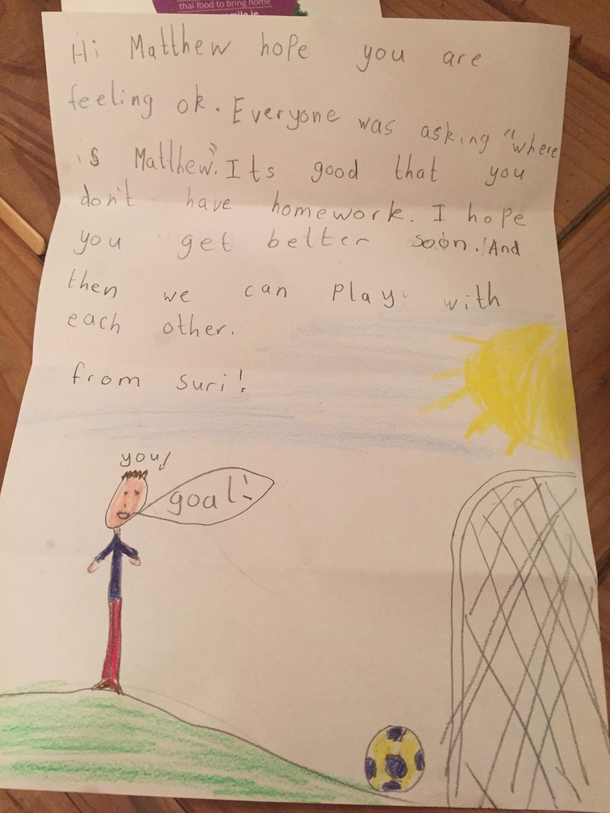 thai food to bring home
Hi Matthew hope you are
feeling ok. Everyone was asking "where
is Matthew". Its good that you
don't have homework. I hope
you get better soon.! And
then we can play with
each other.
from suri!
you!
goal!